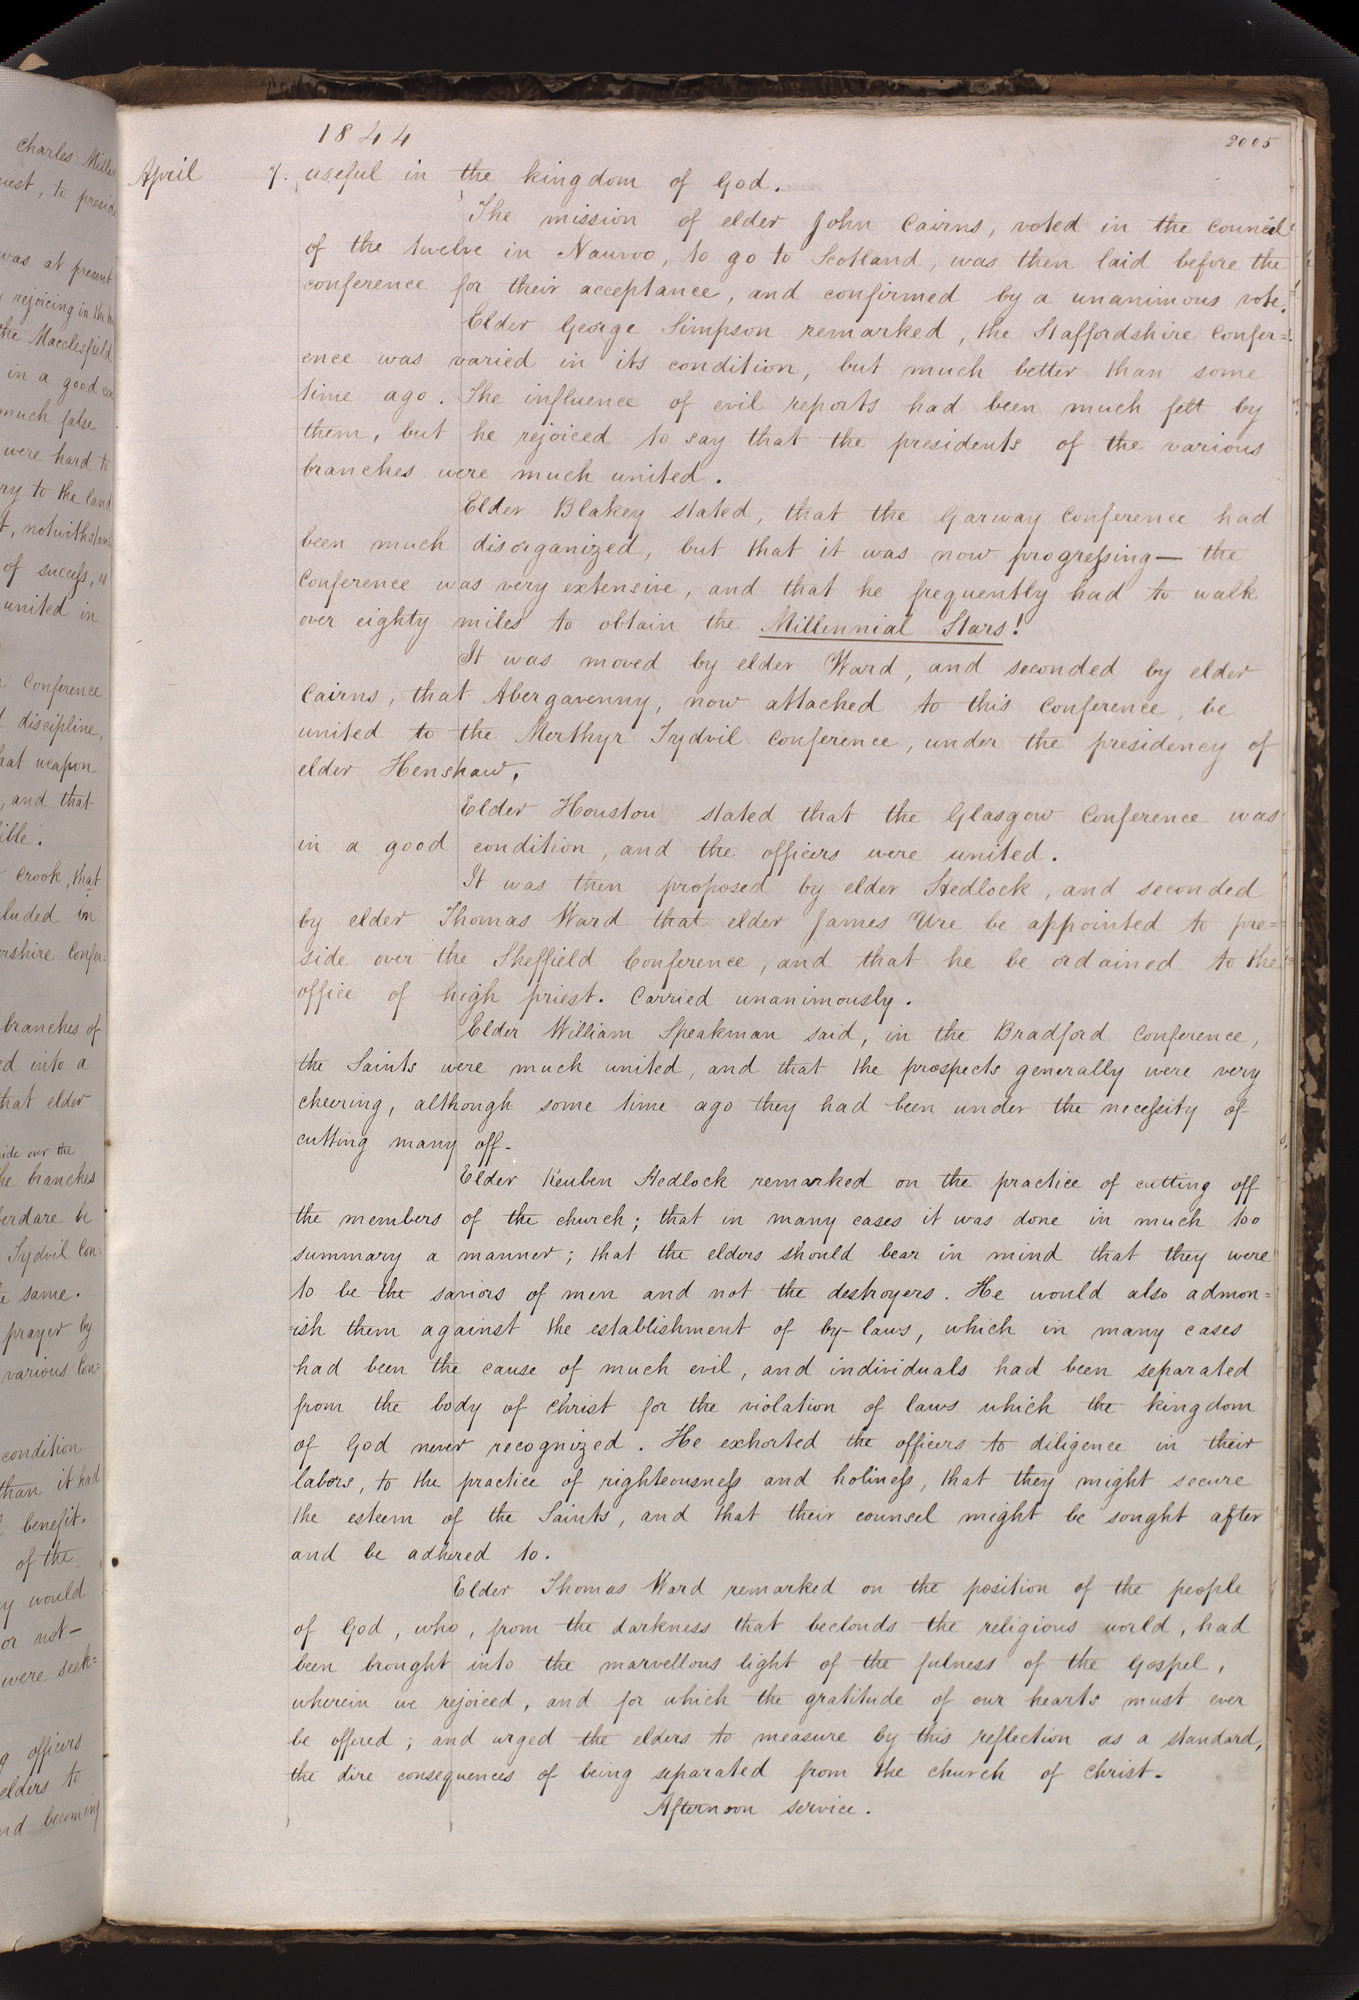 Charles Miller
iest, to preside
was at present
rejoicing in the
the Macclesfield
in a good
much false
were hard to
ry to the land
t, notwithstan
of success,
united in
Conference
discipline,
hat weapon
, and that
ible.
crook, that
luded in
orshire Confer=
branches of
ed into a
that elder
side over the
he branches
erdare be
Tydvil Con=
e same.
prayer by
various Con=
condition
than it had
benefit.
of the
y would
or not—
were seek=
g officers
elders to
nd becoming
1844
2005
April 7. useful in the kingdom of God.
The mission of elder John Cairns, voted in the council
of the twelve in Nauvoo, to go to Scotland, was then laid before the
conference for their acceptance, and confirmed by a unanimous vote.
Elder George Simpson remarked, the Staffordshire Confer=
ence was varied in its condition, but much better than some
time ago. The influence of evil reports had been much felt by
them, but he rejoiced to say that the presidents of the various
branches were much united.
Elder Blakey stated, that the Garway Conference had
been much disorganized, but that it was now progressing— the
Conference was very extensive, and that he frequently had to walk
over eighty miles to obtain the Millennial Stars!
It was moved by elder Ward, and seconded by elder
Cairns, that Abergavenny, now attached to this Conference, be
united to the Merthyr Tydvil Conference, under the presidency of
elder Henshaw.
Elder Houston stated that the Glasgow Conference was
in a good condition, and the officers were united.
It was then proposed by elder Hedlock, and seconded
by elder Thomas Ward that elder James Ure be appointed to pre=
side over the Sheffield Conference, and that he be ordained to the
office of high priest. Carried unanimously.
Elder William Speakman said, in the Bradford Conference,
the Saints were much united, and that the prospects generally were very
cheering, although some time ago they had been under the necessity of
cutting many off.
Elder Reuben Hedlock remarked on the practice of cutting off
the members of the church; that in many cases it was done in much too
summary a manner; that the elders should bear in mind that they were
to be the saviors of men and not the destroyers. He would also admon=
ish them against the establishment of by-laws, which in many cases
had been the cause of much evil, and individuals had been separated
from the body of Christ for the violation of laws which the kingdom
of God never recognized. He exhorted the officers to diligence in their
labors, to the practice of righteousness and holiness, that they might secure
the esteem of the Saints, and that their counsel might be sought after
and be adhered to.
Elder Thomas Ward remarked on the position of the people
of God, who, from the darkness that beclouds the religious world, had
been brought into the marvellous light of the fulness of the Gospel,
wherein we rejoiced, and for which the gratitude of our hearts must ever
be offered; and urged the elders to measure by this reflection as a standard,
the dire consequences of being separated from the church of Christ.
Afternoon service.